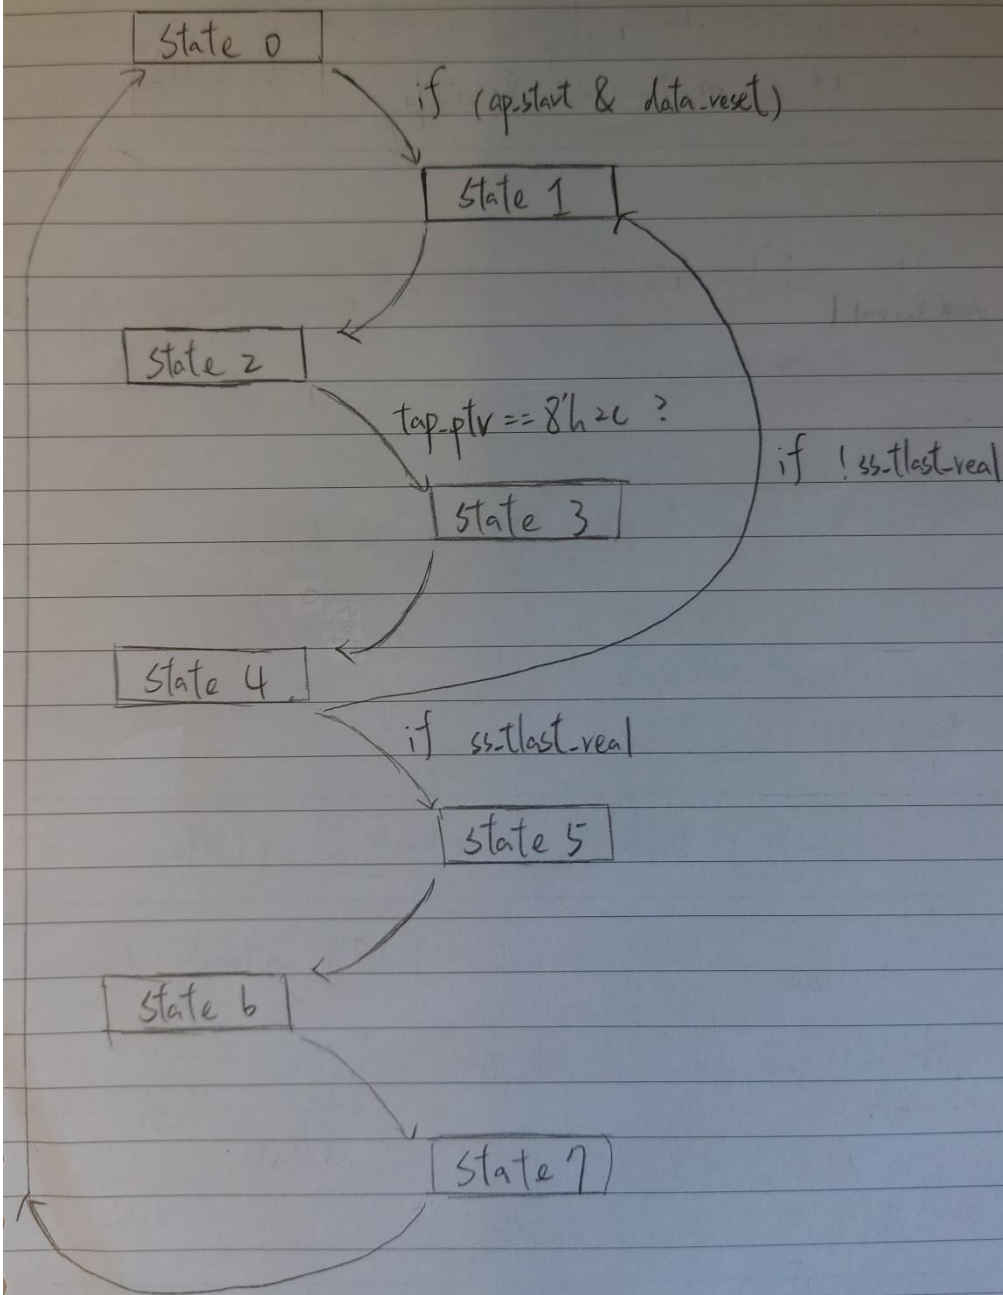 state 0
if (ap_start & data_reset)
state 1
state 2
tap_ptr == 8'h2c ?
if !ss_tlast_real
state 3
state 4
if ss_tlast_real
state 5
state 6
state 7